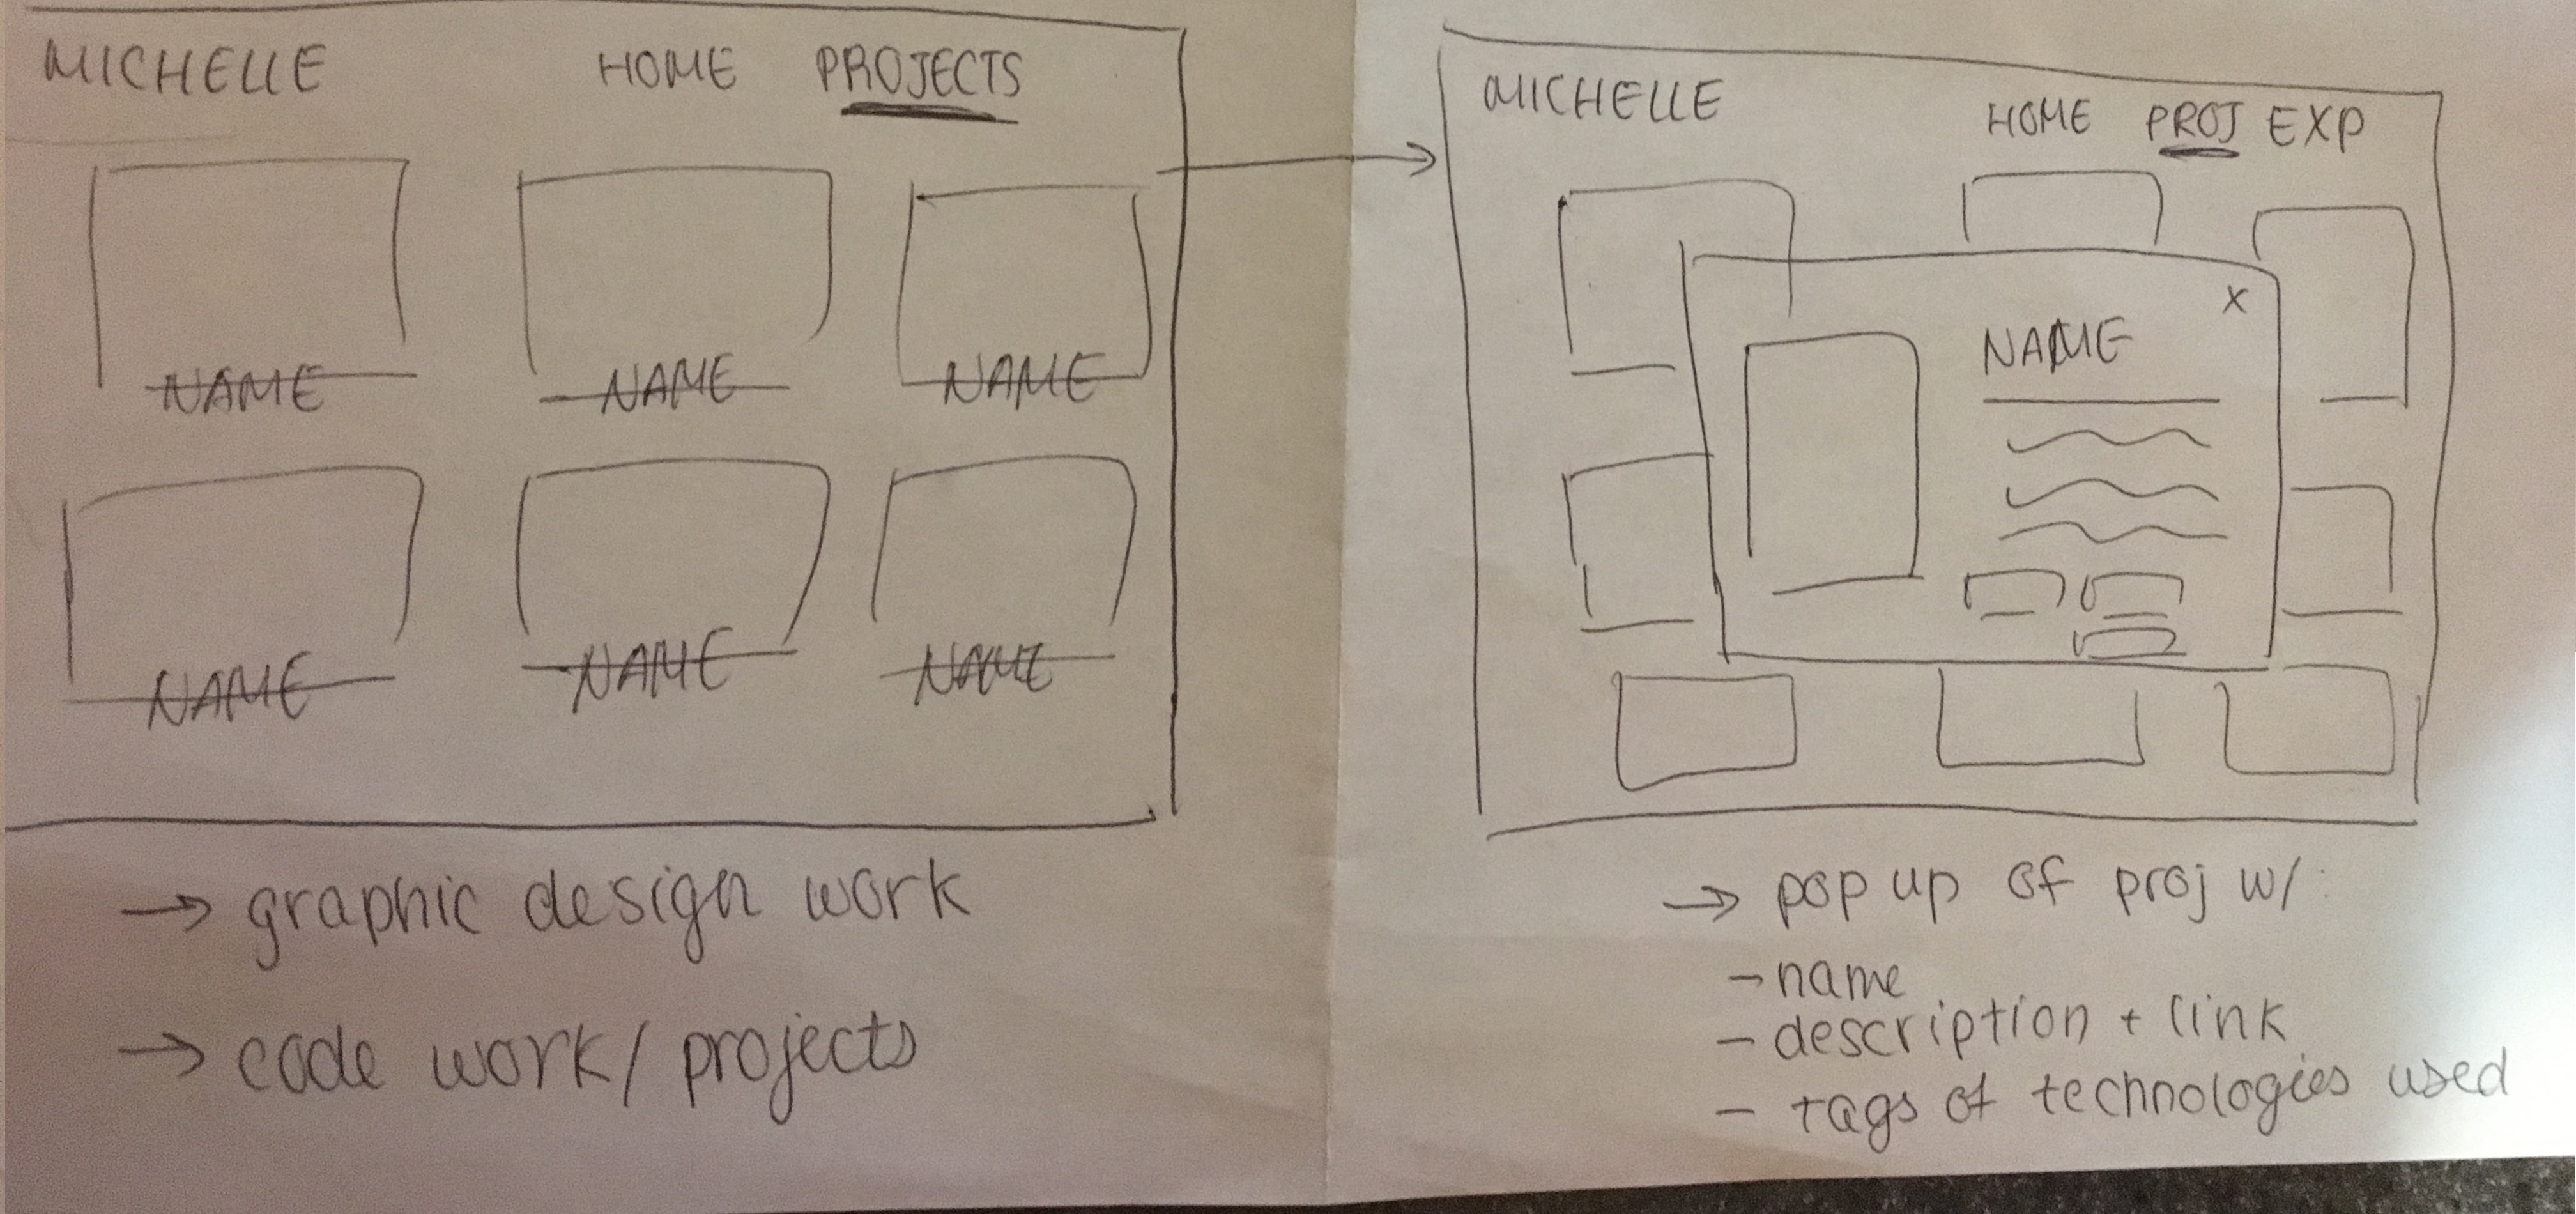 MICHELLE HOME PROJECTS
NAME NAME NAME
NAME NAME NAME
→ graphic design work
→ code work/projects
MICHELLE HOME PROJ EXP
X
NAME
→ pop up of proj w/:
- name
- description + link
- tags of technologies used